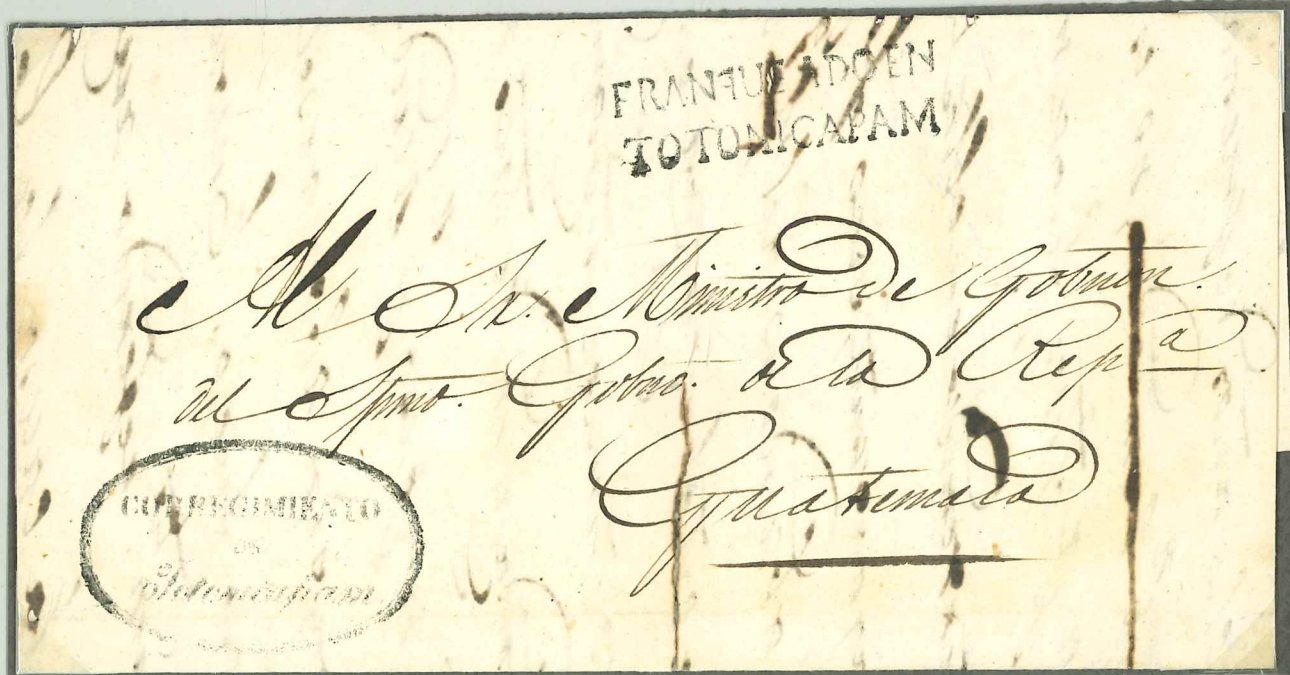 FRANQUEADO EN
TOTONICAPAM
Al Sr. Ministro de Gobnon.
del Spmo. Gobno. de la Repa
Guatemala
CORREGIMIENTO
DE
Totonicapam